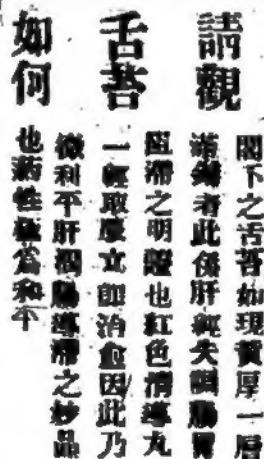 請觀
舌苔
如何
閣下之舌苔如現黃厚一層
滯緣者此係肝經失調腸胃
阻滯之明證也紅色清導丸
一經取服立即消愈因此乃
微利平肝潤腸導滯之妙品
也藥性極為和平